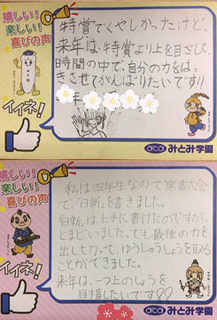 嬉しい!
楽しい!!
喜びの声
イイネ!
みとみ学園
特賞でくやしかったけど、
来年は、特賞より上を目ざして
時間の中で、自分の力をは、
きさせてがんばりたいです!!
嬉しい!
楽しい!!
喜びの声
イイネ!
みとみ学園
私は四年生なので席書大会
で、「白新」を書きました。
白新は、上手に書けたのですが、
とまどいました。でも最後の力を
出しきって、ゆうしゅうしょうをとる
ことができました。
来年は、一つ上のしょうを
目指したいです♡♡